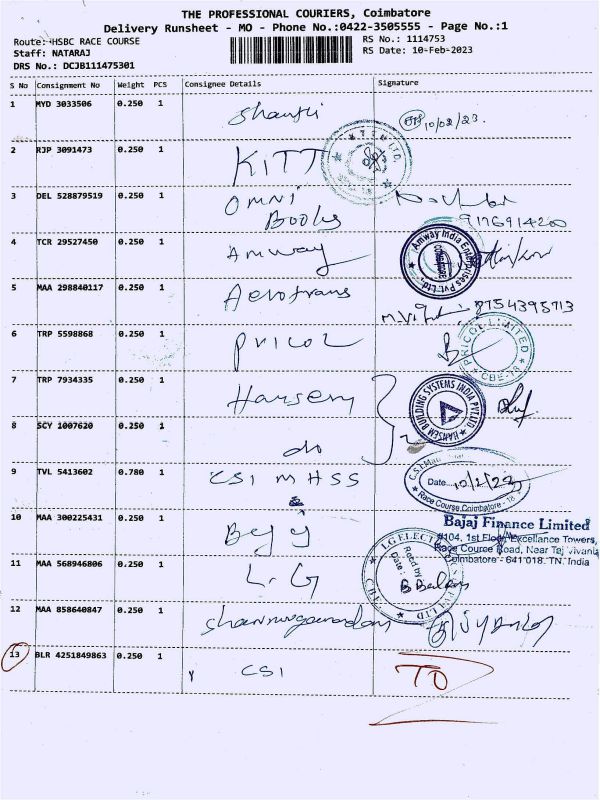 THE PROFESSIONAL COURIERS, Coimbatore
Delivery Runsheet - MO - Phone No.:0422-3505555 - Page No.:1
Route: HSBC RACE COURSE
RS No.: 1114753
Staff: NATARAJ
RS Date: 10-Feb-2023
DRS No.: DCJB111475301
S No Consignment No Weight PCS Consignee Details Signature
1 MYD 3033506 0.250 1 Shanthi 10/02/23.
2 RJP 3091473 0.250 1 KITT
3 DEL 528879519 0.250 1 OMNI
Books 9176914200
4 TCR 29527450 0.250 1 Amway
Amway India Enterprises Pvt Ltd.
5 MAA 298840117 0.250 1 Aerotrans
8754395713
6 TRP 5598868 0.250 1 PRICOL
PRICOL LIMITED
CBE-18
7 TRP 7934335 0.250 1 Hansen
HANSEM BUILDING SYSTEMS INDIA PVT LTD
8 SCY 1007620 0.250 1 do
9 TVL 5413602 0.780 1 CSI MHSS
Date 10/2/23
Race Course, Coimbatore - 18
10 MAA 300225431 0.250 1 Bajaj
Bajaj Finance Limited
#104, 1st Floor, Excellance Towers,
Race Course Road, Near Taj Vivanta
Coimbatore - 641 018. TN. India
11 MAA 568946806 0.250 1 L.G
LG ELECT PVT LTD
Recd by
Date:
CBE
12 MAA 858640847 0.250 1 Shanmuganandam
13 BLR 4251849863 0.250 1 CSI TD